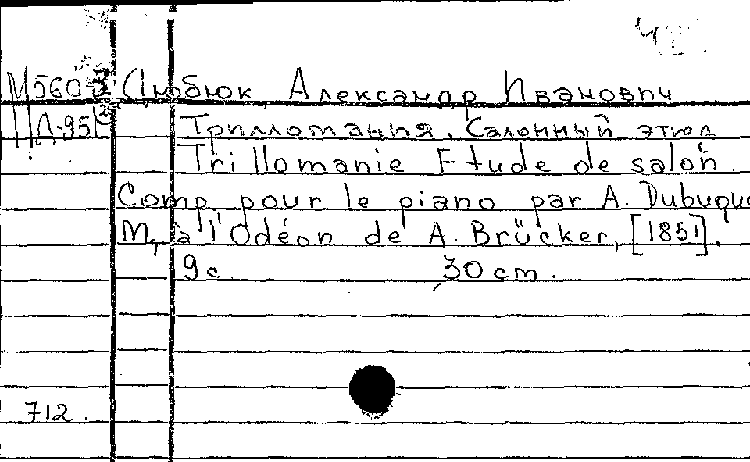 М560-3 Дюбюк Александр Иванович
Д-95
Трилломания. Салонный этюд
Trillomanie Etude de salon
Comp. pour le piano par A. Dubuque
M, à l'Odéon de A. Brücker, [1851].
9 с. 30 cm.
712.